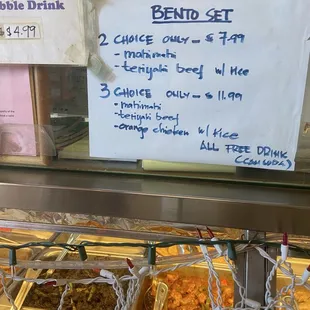 bble Drink
$4.99
BENTO SET
2 CHOICE ONLY - $ 7.99
- mahimahi
- teriyaki beef w/ rice
3 CHOICE ONLY - $ 11.99
- mahimahi
- teriyaki beef
- orange chicken w/ rice
ALL FREE DRINK